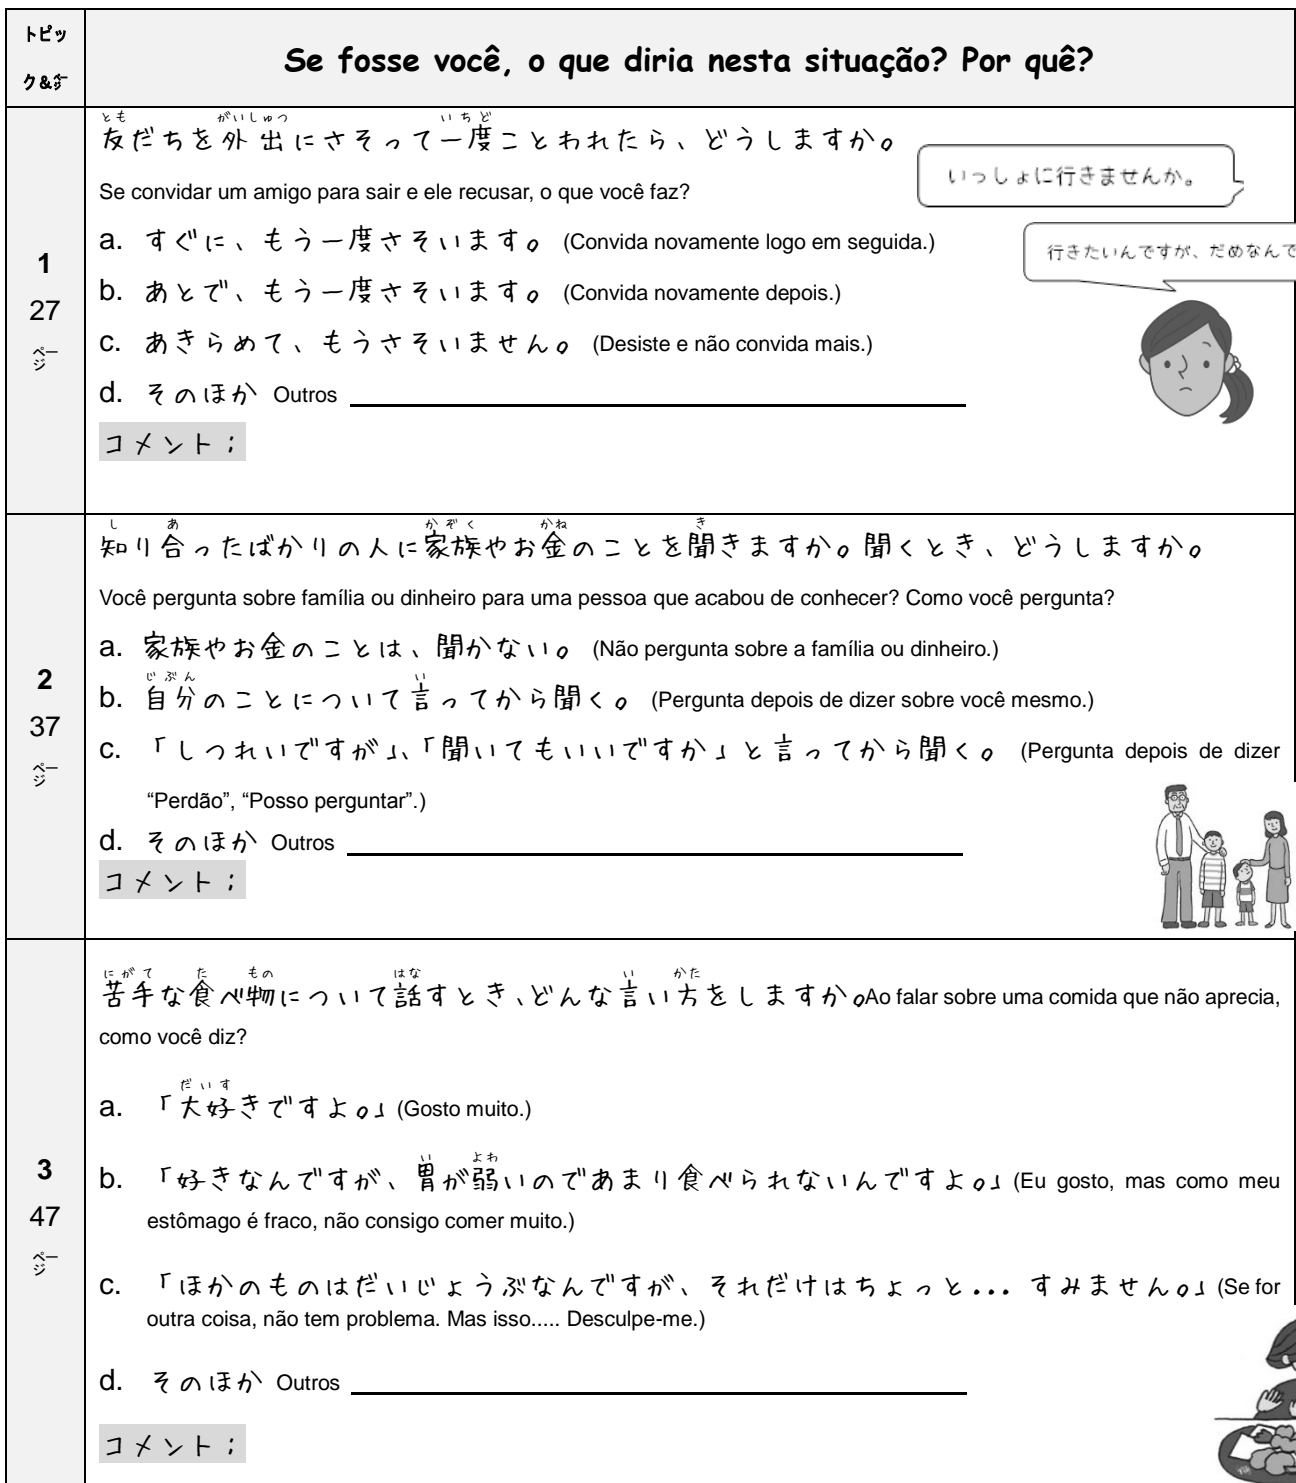 トピッ
ク&ページ
Se fosse você, o que diria nesta situação? Por quê?
1
27
ページ
友だちを外出にさそって一度ことわれたら、どうしますか。
とも がいしゅつ いちど
Se convidar um amigo para sair e ele recusar, o que você faz?
いっしょに行きませんか。
a. すぐに、もう一度さそいます。 (Convida novamente logo em seguida.)
行きたいんですが、だめなんで
b. あとで、もう一度さそいます。 (Convida novamente depois.)
c. あきらめて、もうさそいません。 (Desiste e não convida mais.)
d. そのほか Outros
コメント;
2
37
ページ
し あ かぞく かね き
知り合ったばかりの人に家族やお金のことを聞きますか。聞くとき、どうしますか。
Você pergunta sobre família ou dinheiro para uma pessoa que acabou de conhecer? Como você pergunta?
a. 家族やお金のことは、聞かない。 (Não pergunta sobre a família ou dinheiro.)
じぶん い
b. 自分のことについて言ってから聞く。 (Pergunta depois de dizer sobre você mesmo.)
c. 「しつれいですが」、「聞いてもいいですか」と言ってから聞く。 (Pergunta depois de dizer
“Perdão”, “Posso perguntar”.)
d. そのほか Outros
コメント;
3
47
ページ
にがて た もの はな い かた
苦手な食べ物について話すとき、どんな言い方をしますか。Ao falar sobre uma comida que não aprecia,
como você diz?
だいす
a. 「大好きですよ。」(Gosto muito.)
い よわ
b. 「好きなんですが、胃が弱いのであまり食べられないんですよ。」(Eu gosto, mas como meu
estômago é fraco, não consigo comer muito.)
c. 「ほかのものはだいじょうぶなんですが、それだけはちょっと... すみません。」(Se for
outra coisa, não tem problema. Mas isso..... Desculpe-me.)
d. そのほか Outros
コメント;